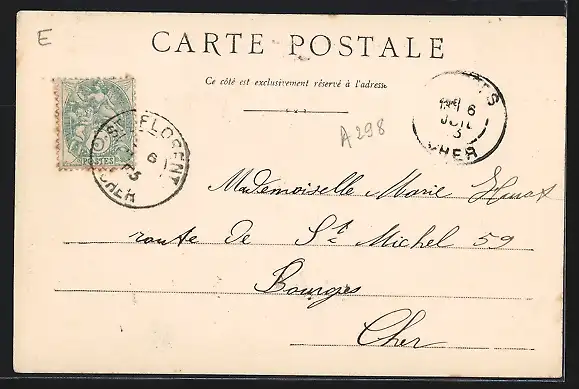 E
CARTE POSTALE
Ce côté est exclusivement réservé à l'adresse
A298
5
POSTES
ST FLORENT
6
05
CHER
6
JUIL
CHER
Mademoiselle Marie Huot
route de St Michel 59
Bourges
Cher